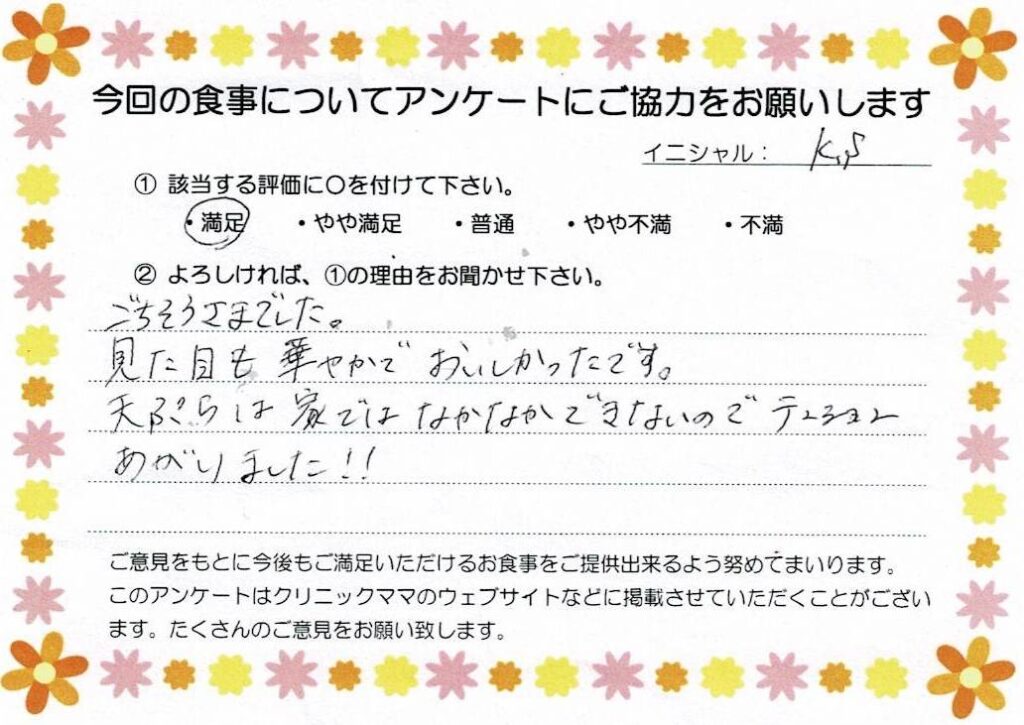 今回の食事についてアンケートにご協力をお願いします
イニシャル： K.S
① 該当する評価に○を付けて下さい。
・満足 ・やや満足 ・普通 ・やや不満 ・不満
② よろしければ、①の理由をお聞かせ下さい。
ごちそうさまでした。
見た目も華やかでおいしかったです。
天ぷらは家ではなかなかできないのでテンション
あがりました!!
ご意見をもとに今後もご満足いただけるお食事をご提供出来るよう努めてまいります。
このアンケートはクリニックママのウェブサイトなどに掲載させていただくことがござい
ます。たくさんのご意見をお願い致します。